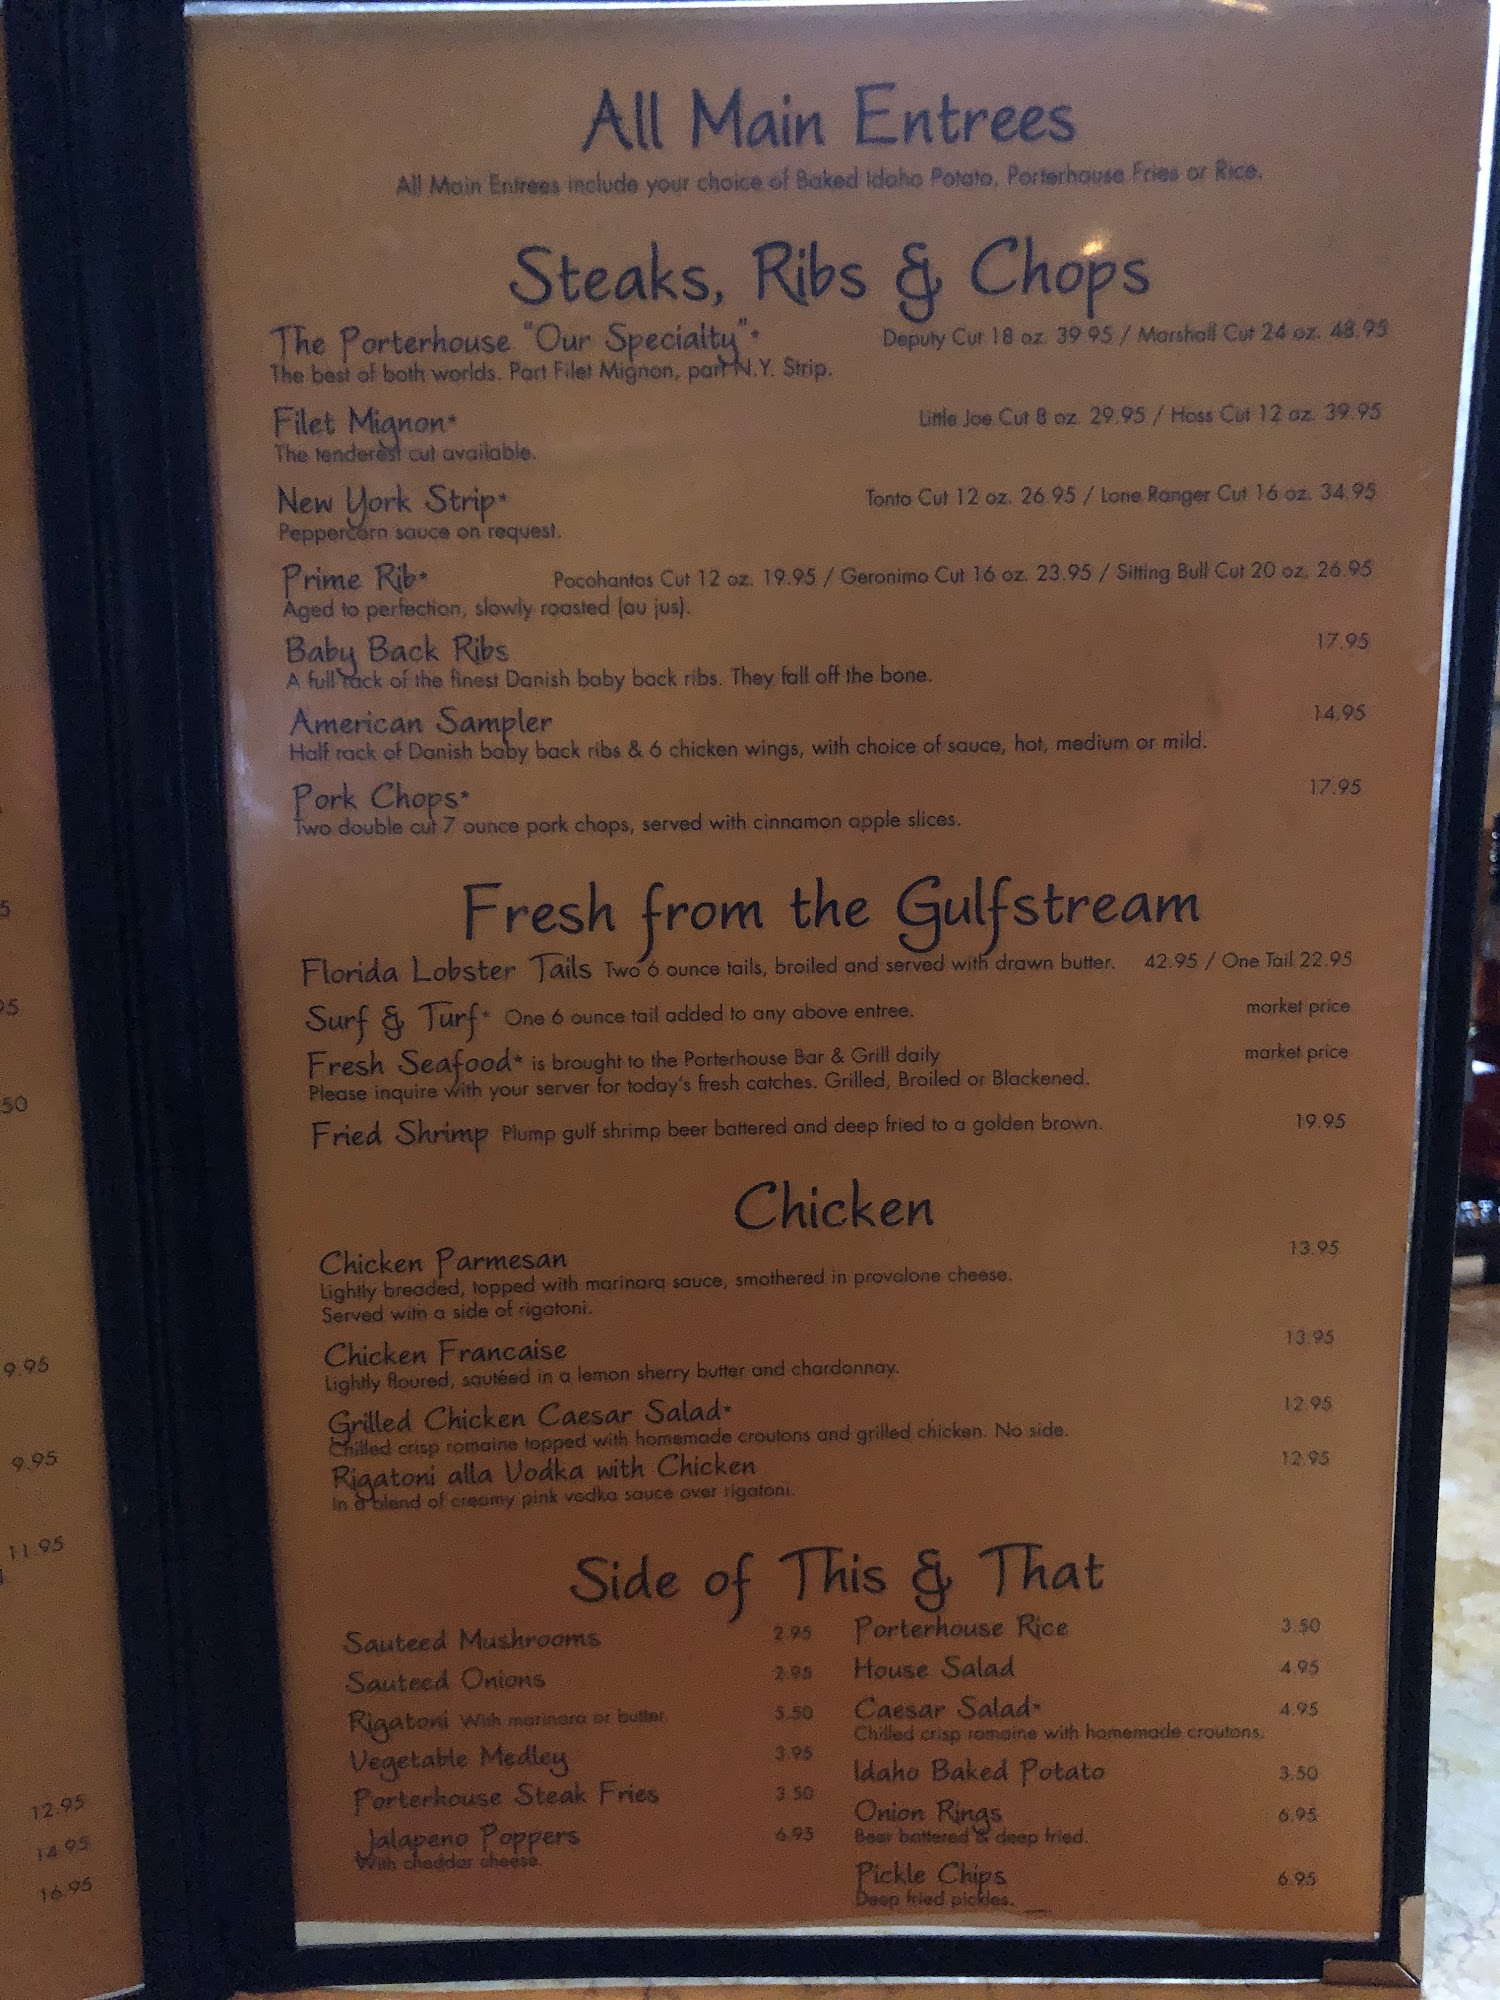 All Main Entrees
All Main Entrees include your choice of Baked Idaho Potato, Porterhouse Fries or Rice.
Steaks, Ribs & Chops
The Porterhouse "Our Specialty"* Deputy Cut 18 oz. 39.95 / Marshall Cut 24 oz. 48.95
The best of both worlds. Part Filet Mignon, part N.Y. Strip.
Filet Mignon* Little Joe Cut 8 oz. 29.95 / Hoss Cut 12 oz. 39.95
The tenderest cut available.
New York Strip* Tonto Cut 12 oz. 26.95 / Lone Ranger Cut 16 oz. 34.95
Peppercorn sauce on request.
Prime Rib* Pocohantos Cut 12 oz. 19.95 / Geronimo Cut 16 oz. 23.95 / Sitting Bull Cut 20 oz. 26.95
Aged to perfection, slowly roasted (au jus).
Baby Back Ribs 17.95
A full rack of the finest Danish baby back ribs. They fall off the bone.
American Sampler 14.95
Half rack of Danish baby back ribs & 6 chicken wings, with choice of sauce, hot, medium or mild.
Pork Chops* 17.95
Two double cut 7 ounce pork chops, served with cinnamon apple slices.
Fresh from the Gulfstream
Florida Lobster Tails Two 6 ounce tails, broiled and served with drawn butter. 42.95 / One Tail 22.95
Surf & Turf* One 6 ounce tail added to any above entree. market price
Fresh Seafood* is brought to the Porterhouse Bar & Grill daily market price
Please inquire with your server for today's fresh catches. Grilled, Broiled or Blackened.
Fried Shrimp Plump gulf shrimp beer battered and deep fried to a golden brown. 19.95
Chicken
Chicken Parmesan 13.95
Lightly breaded, topped with marinara sauce, smothered in provolone cheese.
Served with a side of rigatoni.
Chicken Francaise 13.95
Lightly floured, sautéed in a lemon sherry butter and chardonnay.
Grilled Chicken Caesar Salad* 12.95
Chilled crisp romaine topped with homemade croutons and grilled chicken. No side.
Rigatoni alla Vodka with Chicken 12.95
In a blend of creamy pink vodka sauce over rigatoni.
Side of This & That
Sauteed Mushrooms 2.95
Sauteed Onions 2.95
Rigatoni With marinara or butter. 5.50
Vegetable Medley 3.95
Porterhouse Steak Fries 3.50
Jalapeno Poppers 6.95
With cheddar cheese.
Porterhouse Rice 3.50
House Salad 4.95
Caesar Salad* 4.95
Chilled crisp romaine with homemade croutons.
Idaho Baked Potato 3.50
Onion Rings 6.95
Beer battered & deep fried.
Pickle Chips 6.95
Deep fried pickles.
9.95
9.95
11.95
12.95
14.95
16.95